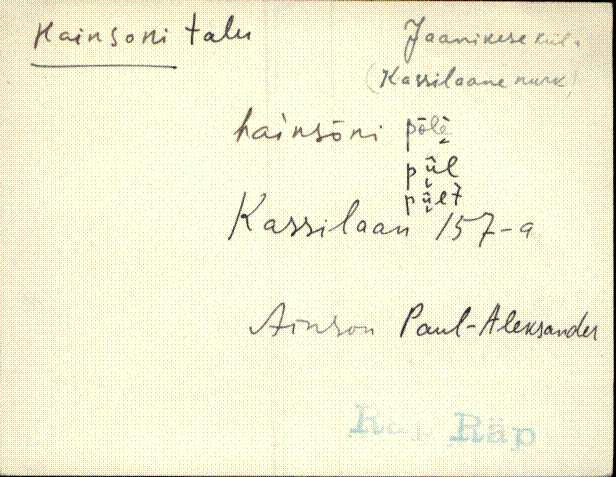 Hainsoni talu
Jaanikese kül.
(Kassilaane nurk)
hainsōni pōlè
pül
pült
Kassilaan 157-a
Ainson Paul-Aleksander
Räp